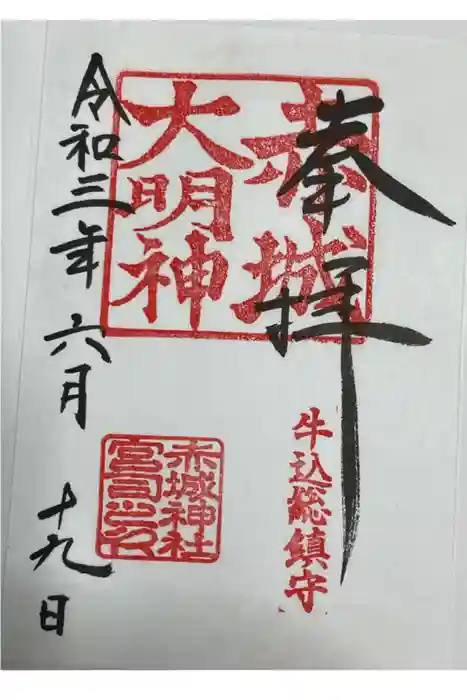 奉拝
赤城
大明神
牛込総鎮守
赤城神社
宮司之印
令和三年六月十九日